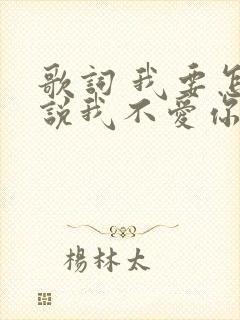 歌詞 我要怎
說我不愛你
楊林太